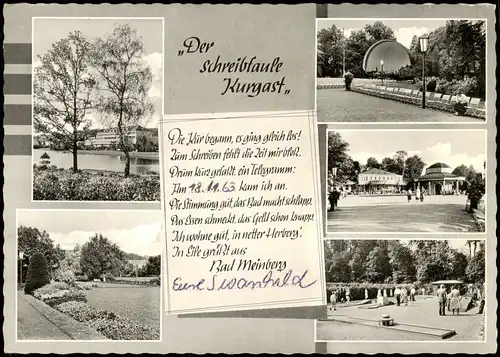 „Der
Schreibfaule
Kurgast"
Die Kur begann, es ging gleich los!
Zum Schreiben fehlt die Zeit mir bloß.
Drum kurz gefaßt, ein Telegramm:
Am 18.11.63 kam ich an.
Die Stimmung gut, das Bad macht schlapp,
Das Essen schmeckt, das Geld schon knapp,
Ich wohne gut, in netter Herberg',
In Eile grüßt aus
Bad Meinberg
Eure Swanhild